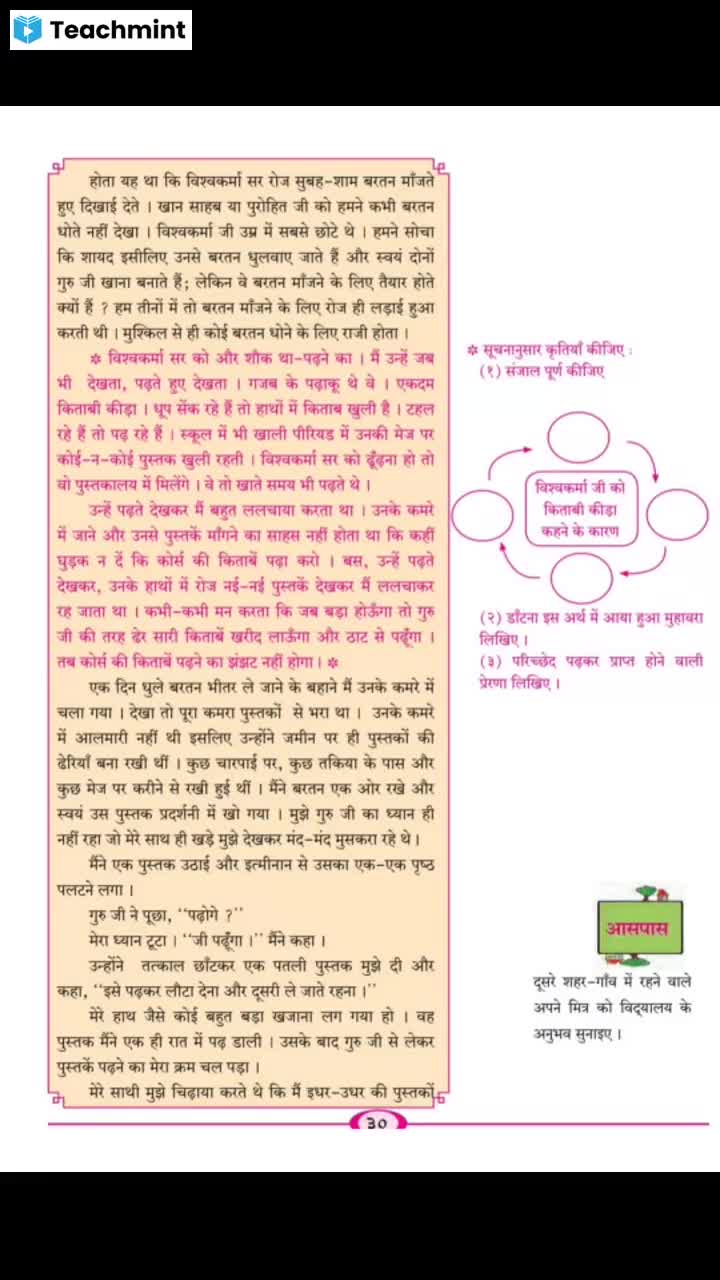 Teachmint
होता यह था कि विश्वकर्मा सर रोज सुबह-शाम बरतन माँजते
हुए दिखाई देते । खान साहब या पुरोहित जी को हमने कभी बरतन
धोते नहीं देखा । विश्वकर्मा जी उम्र में सबसे छोटे थे । हमने सोचा
कि शायद इसीलिए उनसे बरतन धुलवाए जाते हैं और स्वयं दोनों
गुरु जी खाना बनाते हैं; लेकिन वे बरतन माँजने के लिए तैयार होते
क्यों हैं ? हम तीनों में तो बरतन माँजने के लिए रोज ही लड़ाई हुआ
करती थी । मुश्किल से ही कोई बरतन धोने के लिए राजी होता ।
❉ विश्वकर्मा सर को और शौक था-पढ़ने का । मैं उन्हें जब
भी देखता, पढ़ते हुए देखता । गजब के पढ़ाकू थे वे । एकदम
किताबी कीड़ा । धूप सेंक रहे हैं तो हाथों में किताब खुली है । टहल
रहे हैं तो पढ़ रहे हैं । स्कूल में भी खाली पीरियड में उनकी मेज पर
कोई-न-कोई पुस्तक खुली रहती । विश्वकर्मा सर को ढूँढ़ना हो तो
वो पुस्तकालय में मिलेंगे । वे तो खाते समय भी पढ़ते थे ।
उन्हें पढ़ते देखकर मैं बहुत ललचाया करता था । उनके कमरे
में जाने और उनसे पुस्तकें माँगने का साहस नहीं होता था कि कहीं
घुड़क न दें कि कोर्स की किताबें पढ़ा करो । बस, उन्हें पढ़ते
देखकर, उनके हाथों में रोज नई-नई पुस्तकें देखकर मैं ललचाकर
रह जाता था । कभी-कभी मन करता कि जब बड़ा होऊँगा तो गुरु
जी की तरह ढेर सारी किताबें खरीद लाऊँगा और ठाट से पढ़ूँगा ।
तब कोर्स की किताबें पढ़ने का झंझट नहीं होगा । ❉
एक दिन धुले बरतन भीतर ले जाने के बहाने मैं उनके कमरे में
चला गया । देखा तो पूरा कमरा पुस्तकों से भरा था । उनके कमरे
में आलमारी नहीं थी इसलिए उन्होंने जमीन पर ही पुस्तकों की
ढेरियाँ बना रखी थीं । कुछ चारपाई पर, कुछ तकिया के पास और
कुछ मेज पर करीने से रखी हुई थीं । मैंने बरतन एक ओर रखे और
स्वयं उस पुस्तक प्रदर्शनी में खो गया । मुझे गुरु जी का ध्यान ही
नहीं रहा जो मेरे साथ ही खड़े मुझे देखकर मंद-मंद मुसकरा रहे थे ।
मैंने एक पुस्तक उठाई और इत्मीनान से उसका एक-एक पृष्ठ
पलटने लगा ।
गुरु जी ने पूछा, ‘‘पढ़ोगे ?’’
मेरा ध्यान टूटा । ‘‘जी पढ़ूँगा ।’’ मैंने कहा ।
उन्होंने तत्काल छाँटकर एक पतली पुस्तक मुझे दी और
कहा, ‘‘इसे पढ़कर लौटा देना और दूसरी ले जाते रहना ।’’
मेरे हाथ जैसे कोई बहुत बड़ा खजाना लग गया हो । वह
पुस्तक मैंने एक ही रात में पढ़ डाली । उसके बाद गुरु जी से लेकर
पुस्तकें पढ़ने का मेरा क्रम चल पड़ा ।
मेरे साथी मुझे चिढ़ाया करते थे कि मैं इधर-उधर की पुस्तकों
❉ सूचनानुसार कृतियाँ कीजिए :
(१) संजाल पूर्ण कीजिए
विश्वकर्मा जी को
किताबी कीड़ा
कहने के कारण
(२) डाँटना इस अर्थ में आया हुआ मुहावरा
लिखिए ।
(३) परिच्छेद पढ़कर प्राप्त होने वाली
प्रेरणा लिखिए ।
आसपास
दूसरे शहर-गाँव में रहने वाले
अपने मित्र को विद्यालय के
अनुभव सुनाइए ।
३०